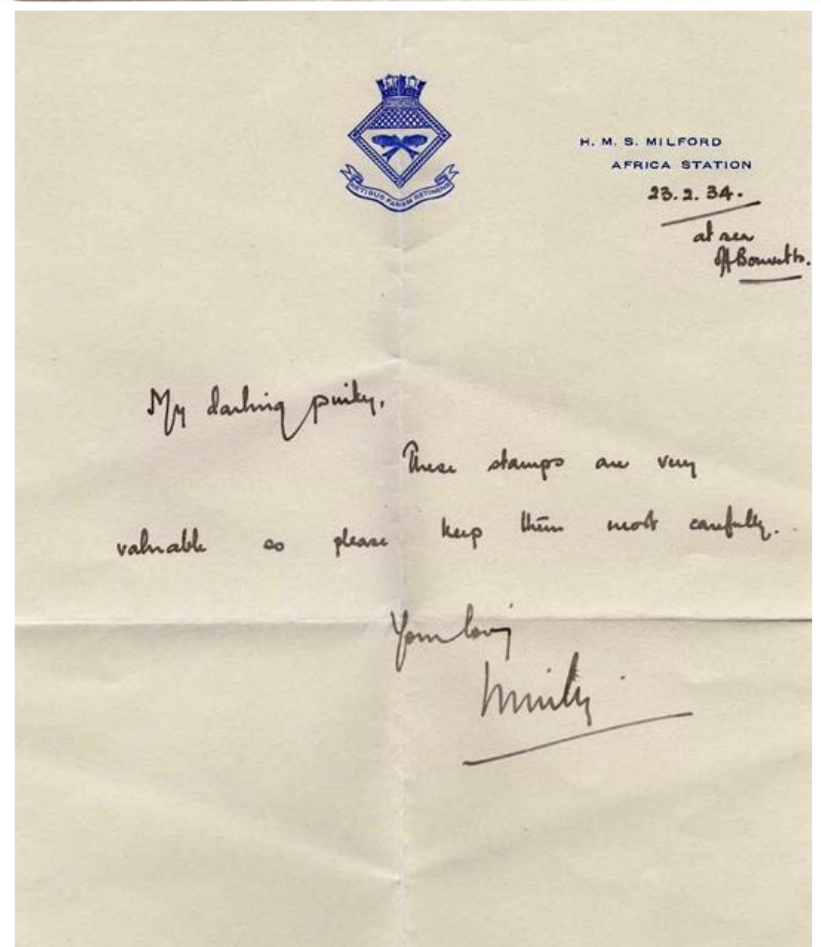 H. M. S. MILFORD
AFRICA STATION
23.2.34.
at sea
off
My darling
These stamps are very
valuable so please keep them most carefully.
Your loving